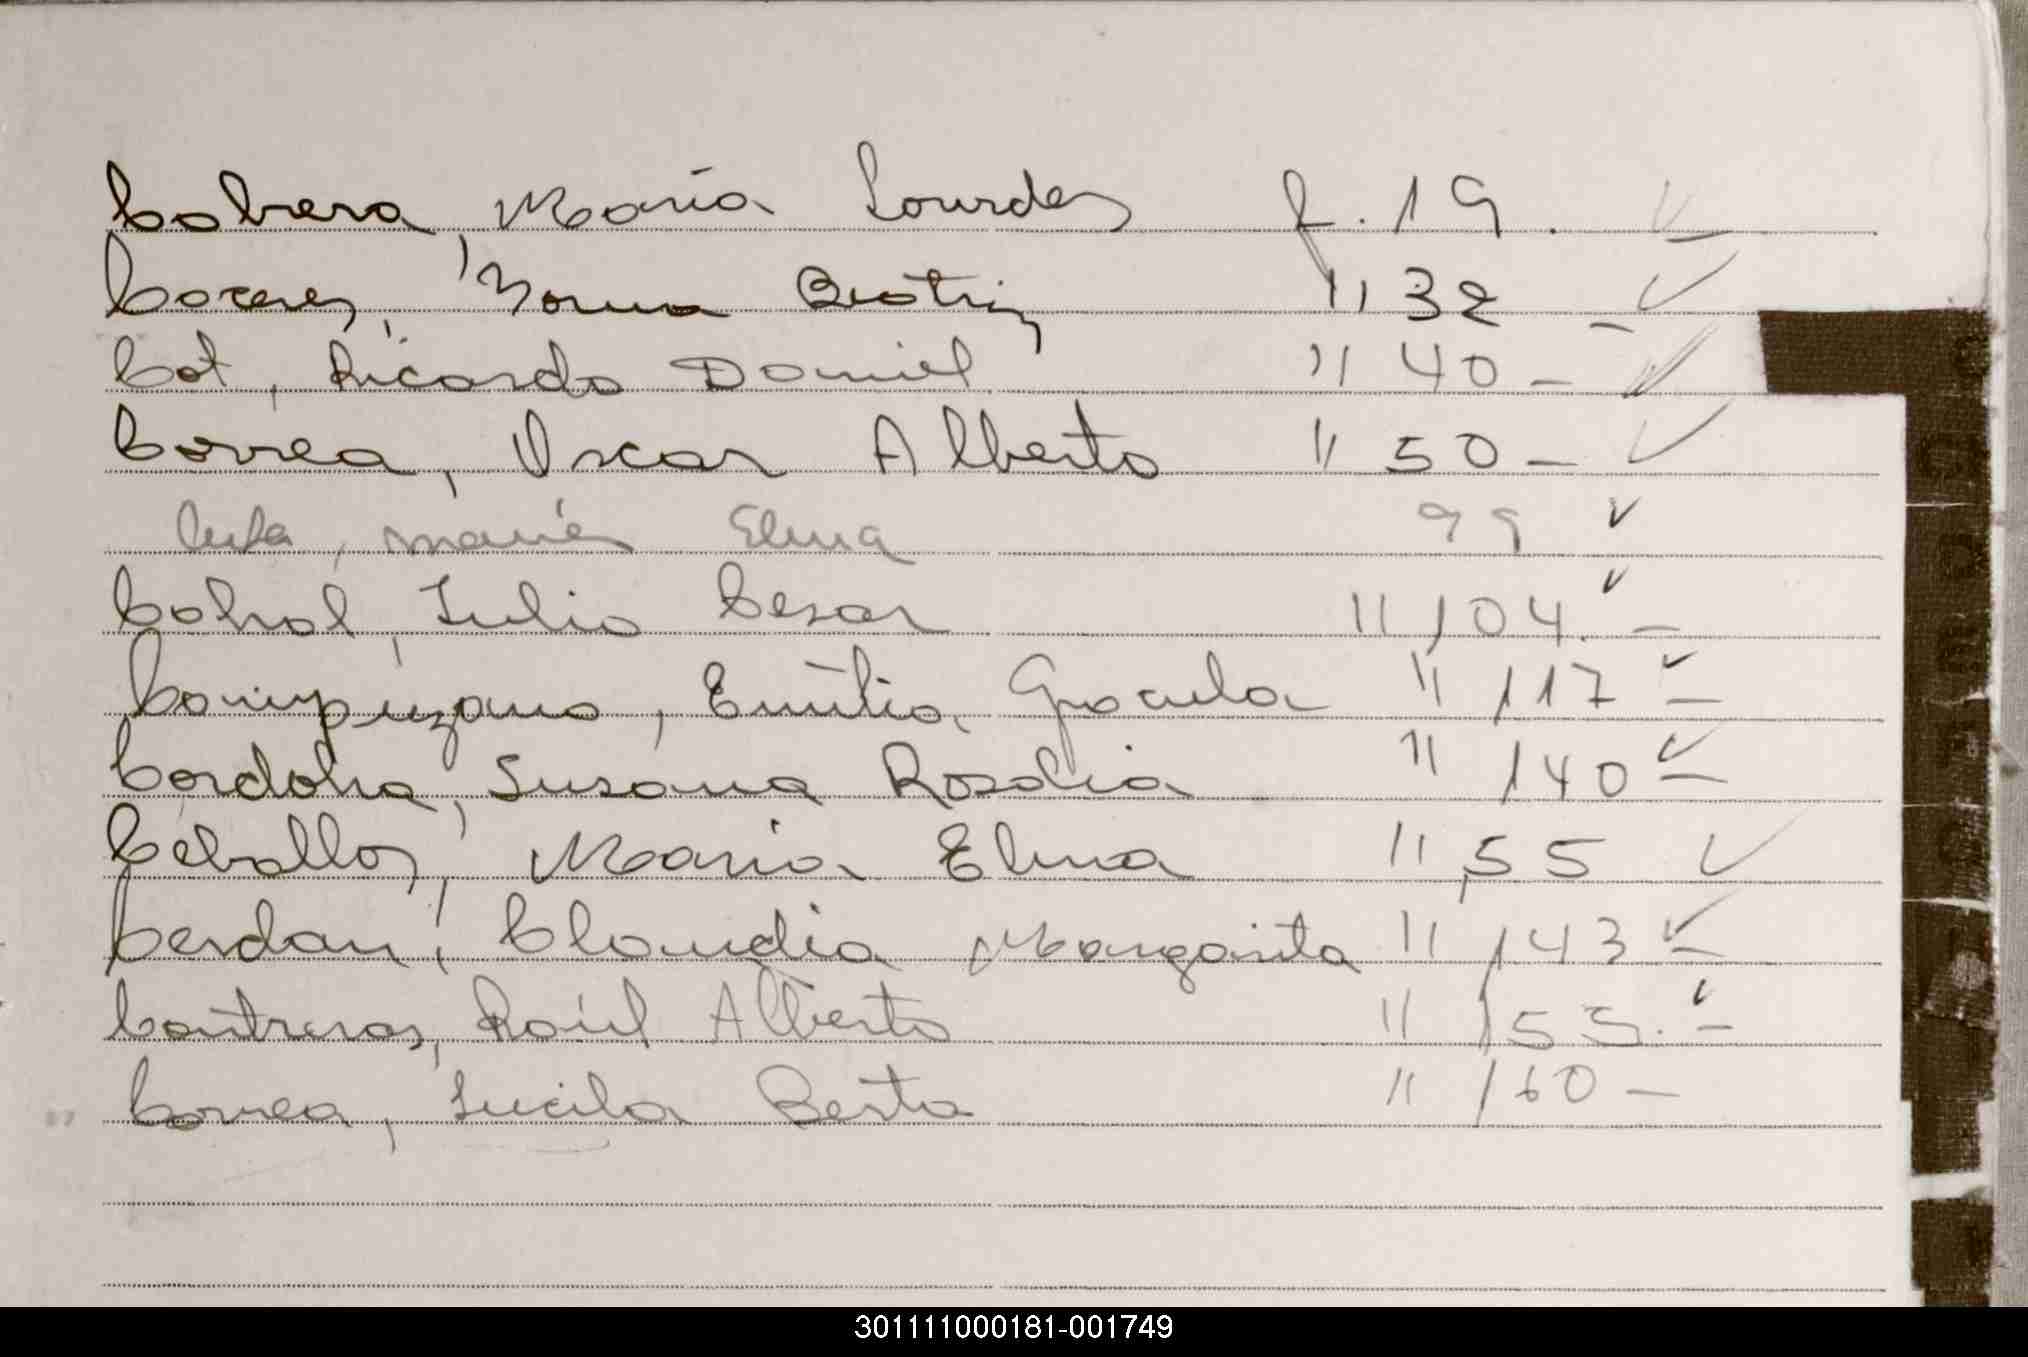 Cabrera, María Lourdes f. 19.
Caceres, Norma Beatriz " 32 _
Cat, Ricardo Daniel " 40 _
Correa, Oscar Alberto " 50 _
maría Elma 99
Cabral, Julio Cesar " 104. _
Emilia Graciela " 117 _
Cordoba, Susana Rosalia " 140 _
Ceballos, Maria Elma " 55
Cerdan, Claudia Margarita " 143 _
Contreras, Raúl Alberto " 155. _
Correa, Lucila Berta " 160 _
301111000181-001749